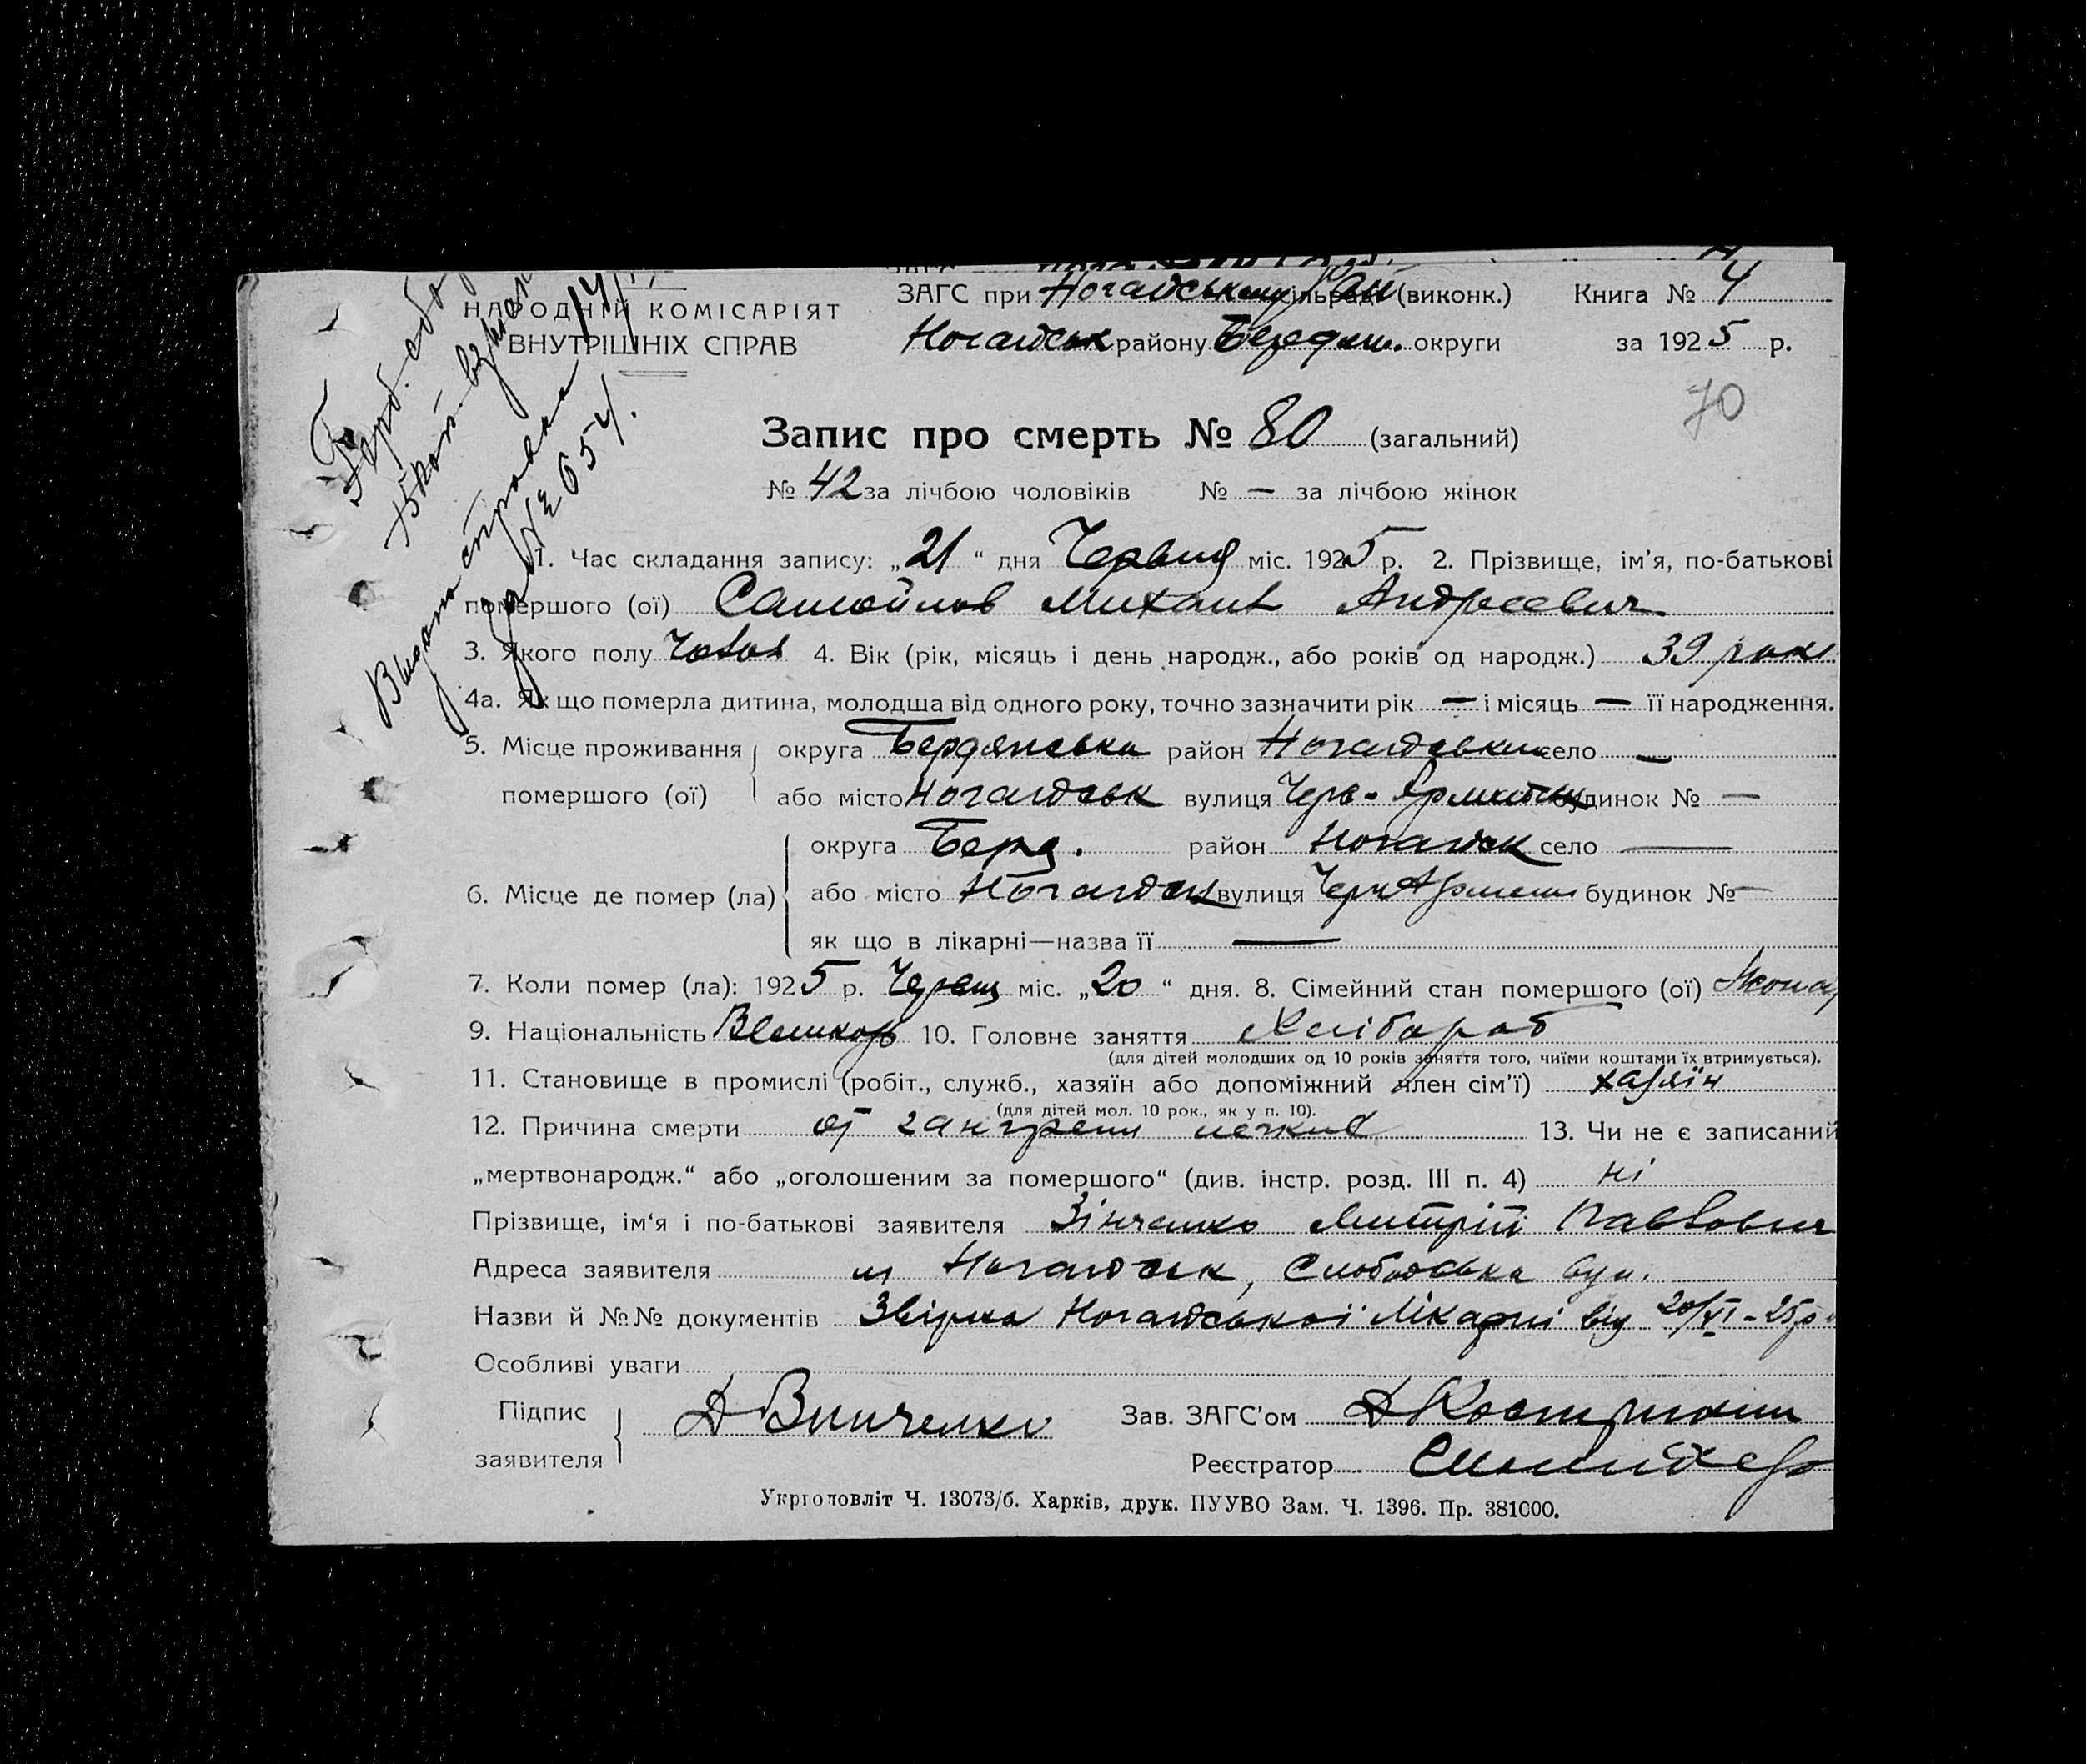 НАРОДНІЙ КОМІСАРІЯТ
ВНУТРІШНІХ СПРАВ
ЗАГС при Ногайському сільраді Рай (виконк.) Книга № 4
Ногайськ району Бердян. округи за 1925 р.
70
Герб. сбор
взыскан
Выдана справка
за № 654.
Запис про смерть № 80 (загальний)
№ 42 за лічбою чоловіків № — за лічбою жінок
1. Час складання запису: „21“ дня Червня міс. 1925 р. 2. Прізвище, ім'я, по-батькові
помершого (ої) Самойлов Михаил Андреевич
3. Якого полу Чолов 4. Вік (рік, місяць і день народж., або років од народж.) 39 рокі
4а. Як що померла дитина, молодша від одного року, точно зазначити рік — і місяць — її народження.
5. Місце проживання помершого (ої) округа Бердянська район Ногайський село —
або місто Ногайськ вулиця Черв-Армійськ будинок № —
6. Місце де помер (ла) округа Берд. район Ногайськ село —
або місто Ногайськ вулиця будинок № —
як що в лікарні—назва її —
7. Коли помер (ла): 1925 р. Червня міс. „20“ дня. 8. Сімейний стан помершого (ої) Жонат
9. Національність Великор 10. Головне заняття Хлібороб
(для дітей молодших од 10 років заняття того, чиїми коштами їх втримується).
11. Становище в промислі (робіт., служб., хазяїн або допоміжний член сім'ї) хазяїн
(для дітей мол. 10 рок., як у п. 10).
12. Причина смерти от гангрени легких 13. Чи не є записаний
„мертвонародж.“ або „оголошеним за помершого“ (див. інстр. розд. III п. 4) ні
Прізвище, ім'я і по-батькові заявителя Зінченко Митрій Павлович
Адреса заявителя м Ногайськ, Слободська вул.
Назви й №№ документів Ногайської Лікарні від 20/VI-25р
Особливі уваги
Підпис заявителя Д Зинченко Зав. ЗАГС'ом
Реєстратор
Укрголовліт Ч. 13073/б. Харків, друк. ПУУВО Зам. Ч. 1396. Пр. 381000.